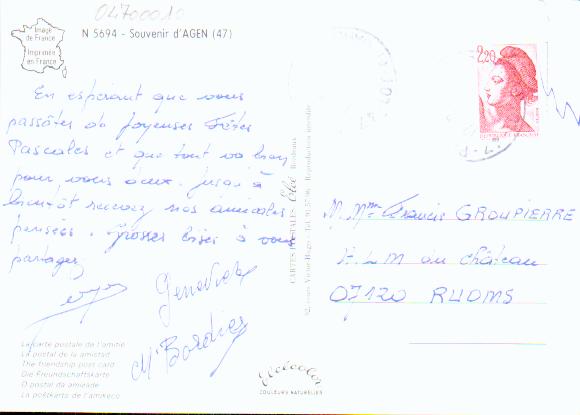 04700010
Image
de France
Imprimée
en France
N 5694 - Souvenir d'AGEN (47)
2,20
En esperant que vous
passâtes de Joyeuses Fêtes
Pascales et que tout va bien
pour vous deux. Jusqu'à
bientôt recevez nos amicales
pensées. Grosses bises à vous
partager
Genevieve
M. Bordies
M. Mme Francis GROUPIERRE
H.L.M du château
07120 RUOMS
La carte postale de l'amitié
La postal de la amistad
The friendship post card
Die Freundschaftskarte
O postal da amizade
La postkarto de l'amikeco
COULEURS NATURELLES